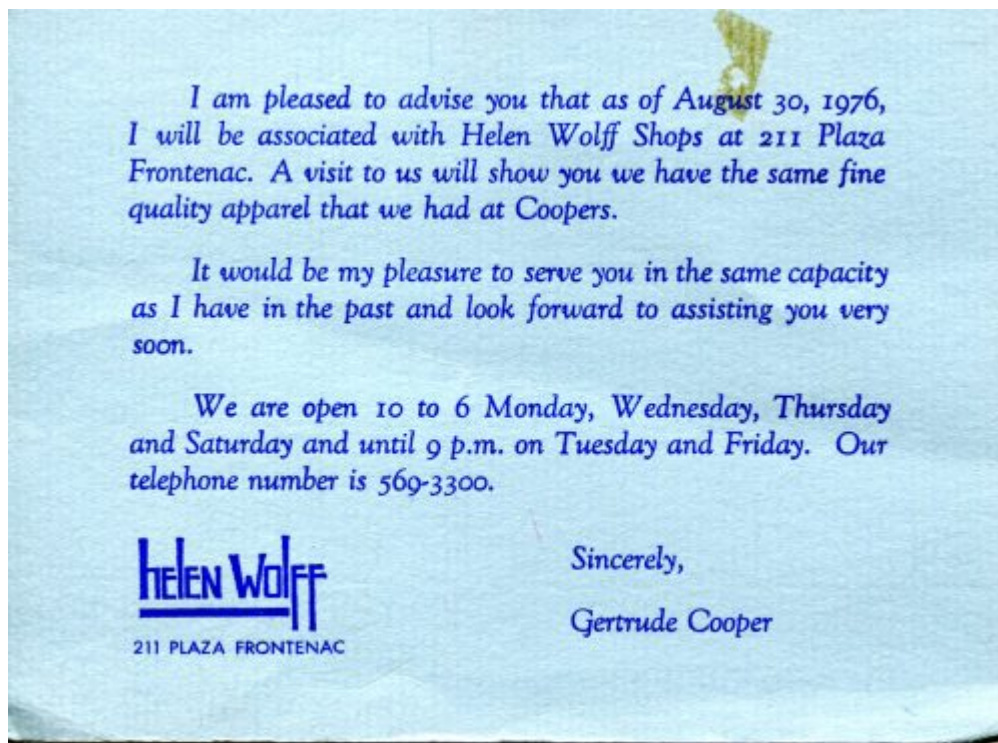 I am pleased to advise you that as of August 30, 1976,
I will be associated with Helen Wolff Shops at 211 Plaza
Frontenac. A visit to us will show you we have the same fine
quality apparel that we had at Coopers.
It would be my pleasure to serve you in the same capacity
as I have in the past and look forward to assisting you very
soon.
We are open 10 to 6 Monday, Wednesday, Thursday
and Saturday and until 9 p.m. on Tuesday and Friday. Our
telephone number is 569-3300.
Sincerely,
Gertrude Cooper
helen Wolff
211 PLAZA FRONTENAC